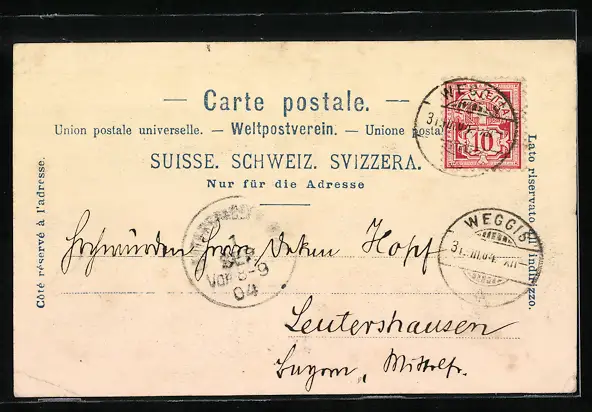 Carte postale.
Union postale universelle. — Weltpostverein. — Unione posta
SUISSE. SCHWEIZ. SVIZZERA.
Nur für die Adresse
Côté réservé à l'adresse.
Lato riservato all'indirizzo.
10
WEGGIS
31.III.04. XII
1
Vor 8-9
04
Hochwürden Herrn Dekan Hopf
Leutershausen
Bayern, Mittelfr.